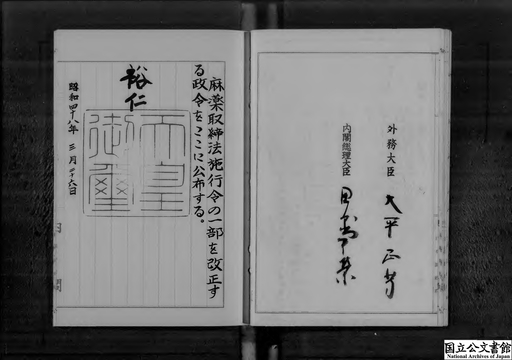 麻薬取締法施行令の一部を改正す
る政令をここに公布する。
裕仁
天皇
御璽
昭和四十八年 三月二十六日
外務大臣 大平正芳
内閣総理大臣 田中角榮
国立公文書館
National Archives of Japan